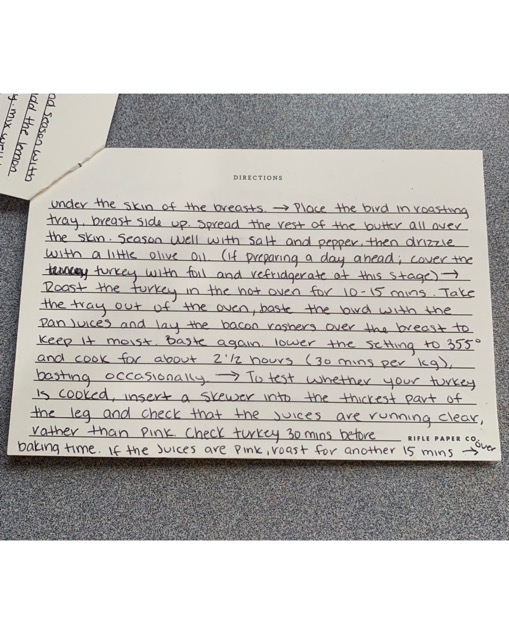 ad season with
add the lemon
y mix well
DIRECTIONS
under the skin of the breasts. → Place the bird in roasting
tray, breast side up. Spread the rest of the butter all over
the skin. Season well with salt and pepper, then drizzle
with a little olive oil. (If preparing a day ahead; cover the
turkey turkey with foil and refridgerate at this stage) →
Roast the turkey in the hot oven for 10-15 mins. Take
the tray out of the oven, baste the bird with the
pan juices and lay the bacon rashers over the breast to
keep it moist. Baste again. lower the setting to 355°
and cook for about 2 1/2 hours (30 mins per kg),
basting occasionally. → To test whether your turkey
is cooked, insert a skewer into the thickest part of
the leg and check that the juices are running clear,
rather than pink. Check turkey 30 mins before
RIFLE PAPER CO.
baking time. If the juices are pink, roast for another 15 mins → over